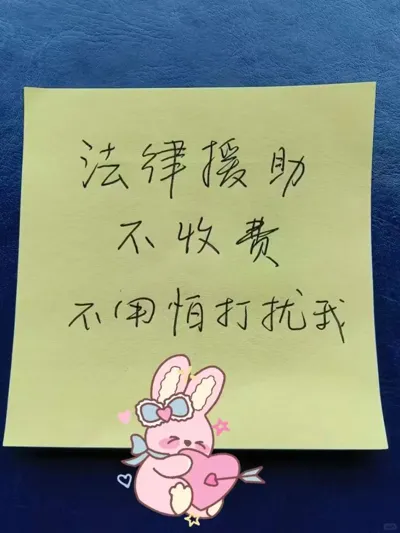 法律援助
不收费
不用怕打扰我